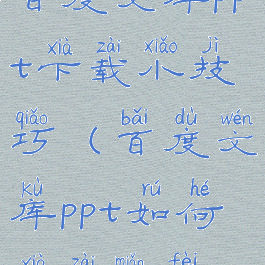 xià zài xiǎo jì
t下载小技
qiǎo bǎi dù wén
巧（百度文
kù rú hé
库ppt如何
xià zài miǎn fèi